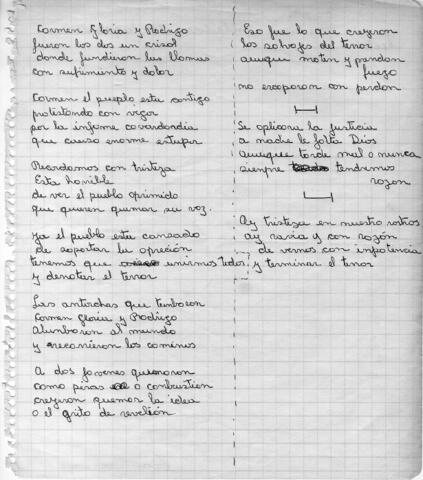 Carmen Gloria y Rodrigo
fueron los dos un crisol
donde fundieron las llamas
con sufrimiento y dolor
Carmen el pueblo esta contigo
protestando con vigor
por la infame covardandia
que causo enorme estupor
Recordamos con tristeza
Esta horrible
de ver el pueblo oprimido
que quieren quemar su voz.
ya el pueblo esta cansado
de soportar la opreción
tenemos que unirnos todos
y derrotar el terror
Las antorchas que
Carmen Gloria y Rodrigo
Alumbaron al mundo
y recorrieron los caminos
A dos jovenes quemaron
como piras o combustion
creyeron quemar la idea
o el grito de revelión
Eso fue lo que creyeron
los salvajes del terror
aunque maten y prendan
fuego
no escaparan con perdon
Se aplicara la justicia
a nadie le falta Dios
Aunque tarde mal o nunca
siempre tendremos
razon
Ay tristeza en nuestro rostros
ay ravia y con razón
de vernos con impotencia
y terminar el terror